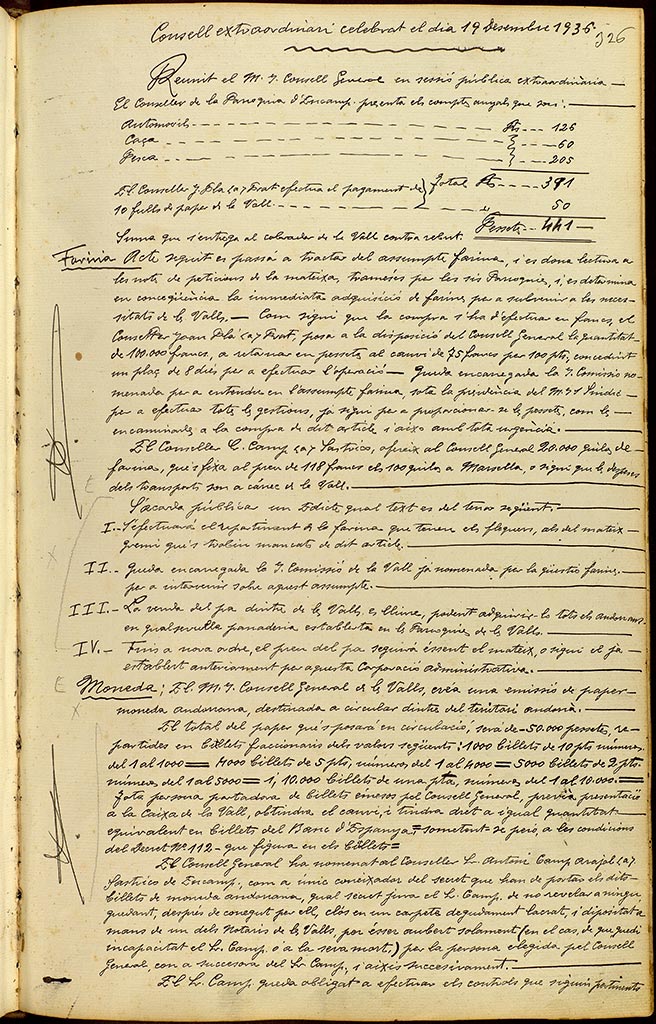 Consell extraordinari celebrat el dia 19 Desembre 1936
326
Reunit el M. I. Consell General en sessió pública extraordinària —
El Conseller de la Parroquia d'Encamp presenta els comptes anyals que son: —
Automovils - - - Pts --- 126
Caça - - - } --- 60
Pesca - - - } --- 205
El Conseller J. Pla (a) Prat efectua el pagament de } Total Pts ---- 391
10 fulls de paper de la Vall - - - " 50
Suma que s'entrega al cobrador de la Vall contra rebut. Pessetes -- 441 —
Farina Acte seguit es passà a tractar del assumpte farina, i es dona lectura a
les notes de peticions de la mateixa, trameses per les sis Parroquies, i es determina
en conseqüencia la immediata adquisició de farina, per a subvenir a les neces-
sitats de les Valls. — Com sigui que la compra s'ha d'efectuar en francs, el
Conseller Joan Plá (a) Prat, posa a la disposició del Consell General la quantitat
de 100.000 francs, a retornar en pessetes al canvi de 75 francs per 100 pts, concedint
un plaç de 8 dies per a efectuar l'operació — Queda encarregada la I. Comissió no-
menada per a entendre en l'assumpte farina, sota la presidència del M. I. Síndic
per a efectuar totes les gestions, ja sigui per a proporcionar-se les pessetes, com les
encaminades a la compra de dit article i aixo amb tota urgència. —
El Conseller C. Camp (a) Sastrico, ofereix al Consell General 20.000 quilos de
farina, que's fixa al preu de 118 francs els 100 quilos a Marsella, o sigui que les despeses
dels transports son a càrrec de la Vall. —
S'acorda publicar un Edicte qual text es del tenor següent. —
I.- S'efectuarà el repartiment de la farina que tenen els flequers, als del mateix
gremi que's trobin mancats de dit article. —
II.- Queda encarregada la I. Comissió de la Vall ja nomenada, per la questió farina,
per a intervenir sobre aquest assumpte. —
III.- La venda del pa dintre de les Valls, es lliure, podent adquirir-lo tots els andorrans
en qualsevulla panaderia establerta en les Parroquies de les Valls. —
IV.- Fins a nova ordre, el preu del pa seguirà éssent el mateix, o sigui el ja
establert anteriorment per aquesta Corporació administrativa. —
Moneda: El M. I. Consell General de les Valls, crea una emissió de paper
moneda andorrana, destinada a circular dintre del teritori andorrà. —
El total del paper que's posarà en circulació, serà de - 50.000 pessetes, re-
partides en bitllets faccionaris dels valors següents: 1000 billets de 10 pts números
del 1 al 1000 = 4000 billets de 5 pts, números del 1 al 4000 = 5000 billets de 2 pts
números del 1 al 5000 = i, 10.000 billets de una pta, números del 1 al 10.000. =
Tota persona portadora de billets emesos pel Consell General, prèvia presentació
a la Caixa de la Vall, obtindra el canvi, i tindra dret a igual quantitat
equivalent en billets del Banc d'Espanya = sometent-se però, a les condicions
del Decret Nº 112 - que figura en els billets =
El Consell General ha nomenat al Conseller Sr. Antoni Camp Arajol (a)
Sastrico de Encamp, com a únic coneixador del secret que han de portar els dits
billets de moneda andorrana, qual secret jura el Sr. Camp, de no revelar a ningu
quedant, després de conegut per ell, clòs en un carpeta degudament lacrat, i dipositat a
mans de un dels Notaris de les Valls, per ésser aubert solament (en el cas, de que quedi
incapacitat el Sr. Camp, o a la seva mort,) per la persona elegida pel Consell
General, com a successora del Sr Camp, i aixís succesivament. —
El Sr. Camp, queda obligat a efectuar els controls que siguin pertinents